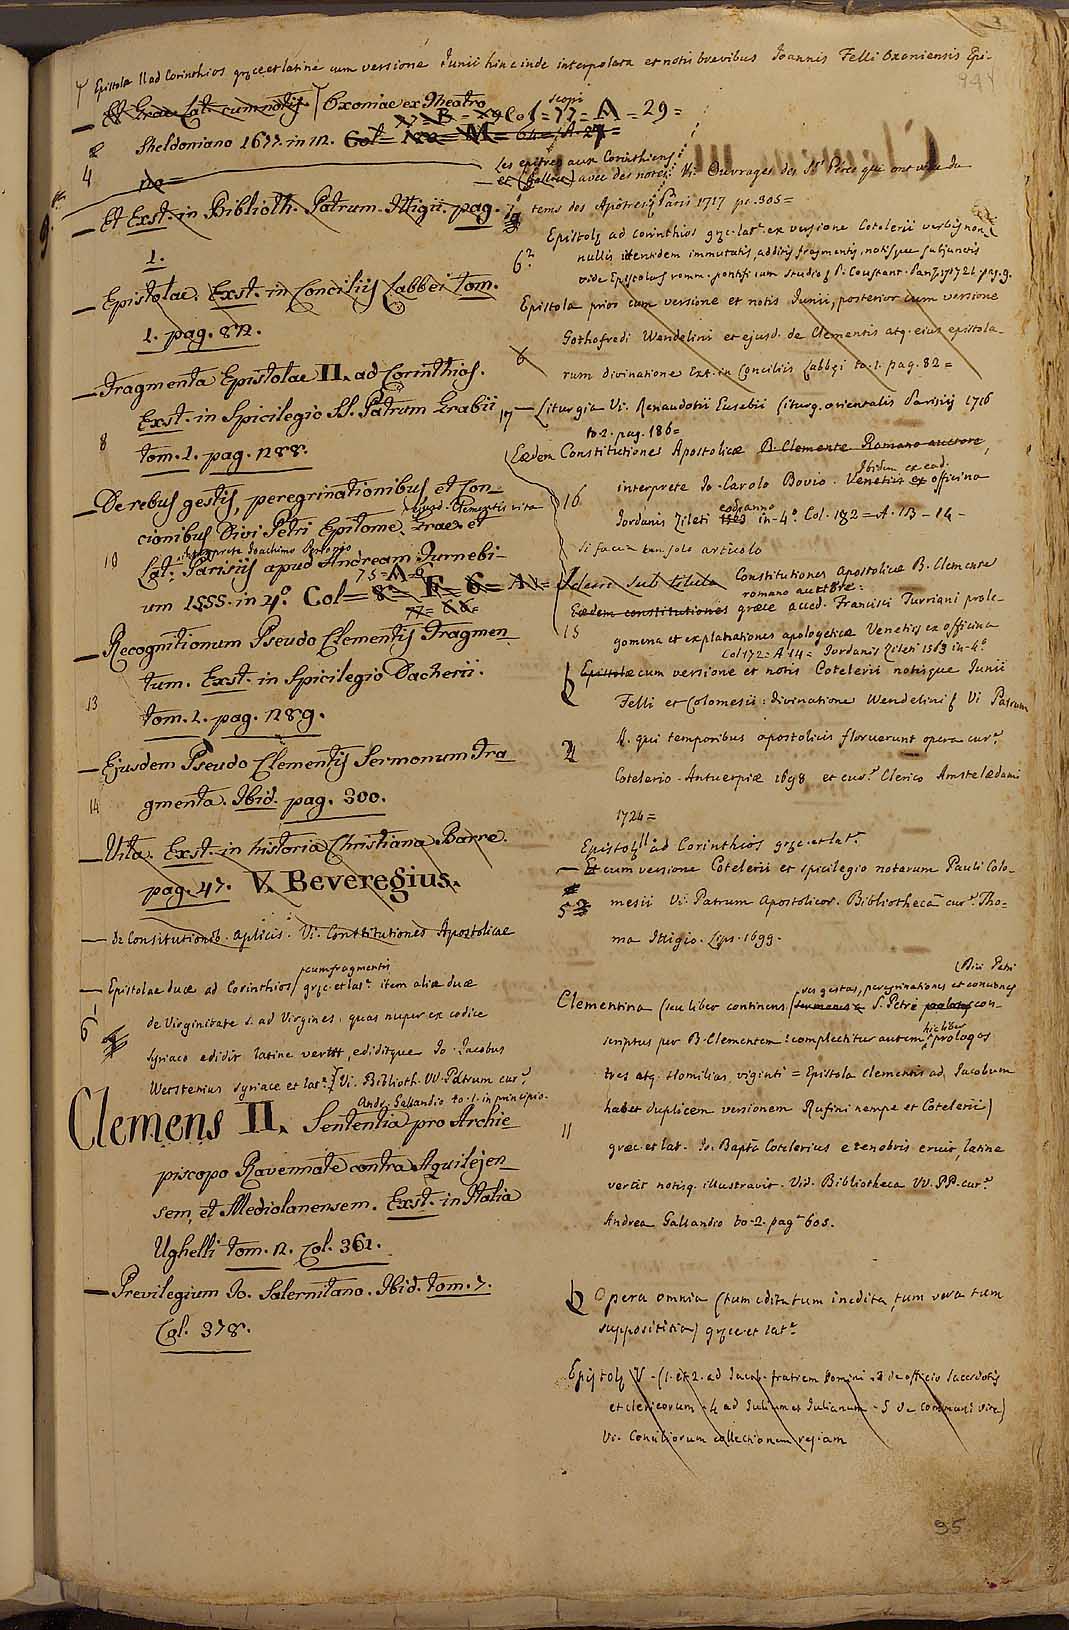 Epistolæ II ad Corinthios græce et latine cum versione Junii hinc inde interpolata et notis brevibus Joannis Felli Oxoniensis Epi-
Et Græc. Lat. cum notis. Oxoniæ ex Theatro
Sheldoniano 1677. in 12.
scopi
Col = 77 = A = 29 =
4
Et Exst. in Biblioth. Patrum. Ittigii. pag.
1.
Epistolae. Exst. in Conciliis Labbei tom.
1. pag. 82.
Fragmenta Epistolae II. ad Corinthios.
Exst. in Spicilegio SS. Patrum Grabii
8
tom. 1. pag. 288.
De rebus gestis, peregrinationibus, et con-
cionibus Divi Petri Epitome, Graec. et
ejusd. Clementis vita
10
interprete Joachimo Perionio
Lat. Parisiis apud Andream Turnebi-
um 1555. in 4º. Col =
75 = A = 6
Recognitionum Pseudo Clementis Fragmen
tum. Exst. in Spicilegio Dacherii.
13
tom. 1. pag. 289.
Ejusdem Pseudo Clementis Sermonum Fra
14
gmenta. Ibid. pag. 300.
Vita. Exst. in historia Christiana Barre.
pag. 47. V. Beveregius.
de Constitutionib. aplicis. Vi. Constitutiones Apostolicae
cum fragmentis
Epistolae duæ ad Corinthios græc. et lat. item aliæ duæ
6
de Virginitate s. ad Virgines, quas nuper ex codice
Syriaco edidit latine vertit, ediditque Jo. Jacobus
Wetstenius syriace et lat. Vi. Biblioth. VV. Patrum cur.
Andr. Gallandio to. 1. in principio.
Clemens II. Sententia pro Archie
piscopo Ravennate contra Aquilejen
sem, et Mediolanensem. Exst. in Italia
Ughelli tom. 2. Col. 361.
Previlegium Jo. Salernitano. Ibid. tom. 7.
Col. 378.
Les epitres aux Corinthiens
et (Gallice) avec des notes. Vi. Ouvrages des SS. Peres qui ont vécu du
7
tems des Apotres Paris 1717 pr. 305 =
Epistolæ ad Corinthios græc. lat. ex versione Cotelerii verbis non
6
nullis itentidem immutatis, additis fragmentis, notisque subjunctis
vide Epistolas romm. pontificum studio P. Coustant. Par. 1721. pag. 9.
Epistola prior cum versione et notis Junii, posterior cum versione
Gothofredi Wendelini et ejusd. de Clementis atq. eius epistola-
6
rum divinatione Ext. in Conciliis Labbei to. 1. pag. 82 =
17 Liturgia Vi. Renaudotii Eusebii Liturg. orientalis Parisiis 1716
to. 2. pag. 186 =
Eædem Constitutiones Apostolicæ B. Clemente Romano auctore,
interprete Jo. Carolo Bovio. Venetiis ex officina
Ibidem ex ead.
16
Jordanis Zileti 1563 in-4º. Col. 182 = A. 113 - 14 -
eod. anno
Si faccia tan solo articolo
Constitutiones Apostolicæ B. Clemente
romano auctore:
Eædem constitutiones græce acced. Francisci Turriani prole-
15
gomena et explanationes apologeticæ Venetiis ex officina
Col 172 = A 14 = Jordanis Zileti 1563 in-4º
Epistolæ cum versione et notis Cotelerii notisque Junii
Felli et Colomesii: divinatione Wendelini Vi Patrum
2
SS. qui temporibus apostolicis floruerunt opera cur.
Cotelerio. Antuerpiæ 1698 et cur. Clerico Amstelædami
1724 =
Epistolæ II ad Corinthios græc. et lat.
Et cum versione Cotelerii et spicilegio notarum Pauli Colo-
5
mesii Vi. Patrum Apostolicor. Bibliotheca cur. Tho-
ma Ittigio. Lips. 1699.
Divi Petri
res gestas, peregrinationes et conciones
Clementina (seu liber continens S. Petri con-
scriptus per B. Clementem: complectitur autem hic liber prologos
tres atq. Homilias viginti = Epistola Clementis ad Jacobum
habet duplicem versionem Rufini nempe et Cotelerii)
11
græc. et lat. Jo. Bapta Cotelerius e tenebris eruit, latine
vertit notisq. illustravit. Vid. Bibliotheca VV. PP. cur.
Andrea Gallandio to. 2. pag. 605.
Opera omnia (tum edita tum inedita, tum vera tum
supposititia) græce et lat.
Epistolæ V. (1. et 2. ad Jacob. fratrem Domini. 3 de officio Sacerdotis
et clericorum. 4 ad Julium et Julianum. 5 de communi vita)
Vi. Conciliorum collectionem regiam
95